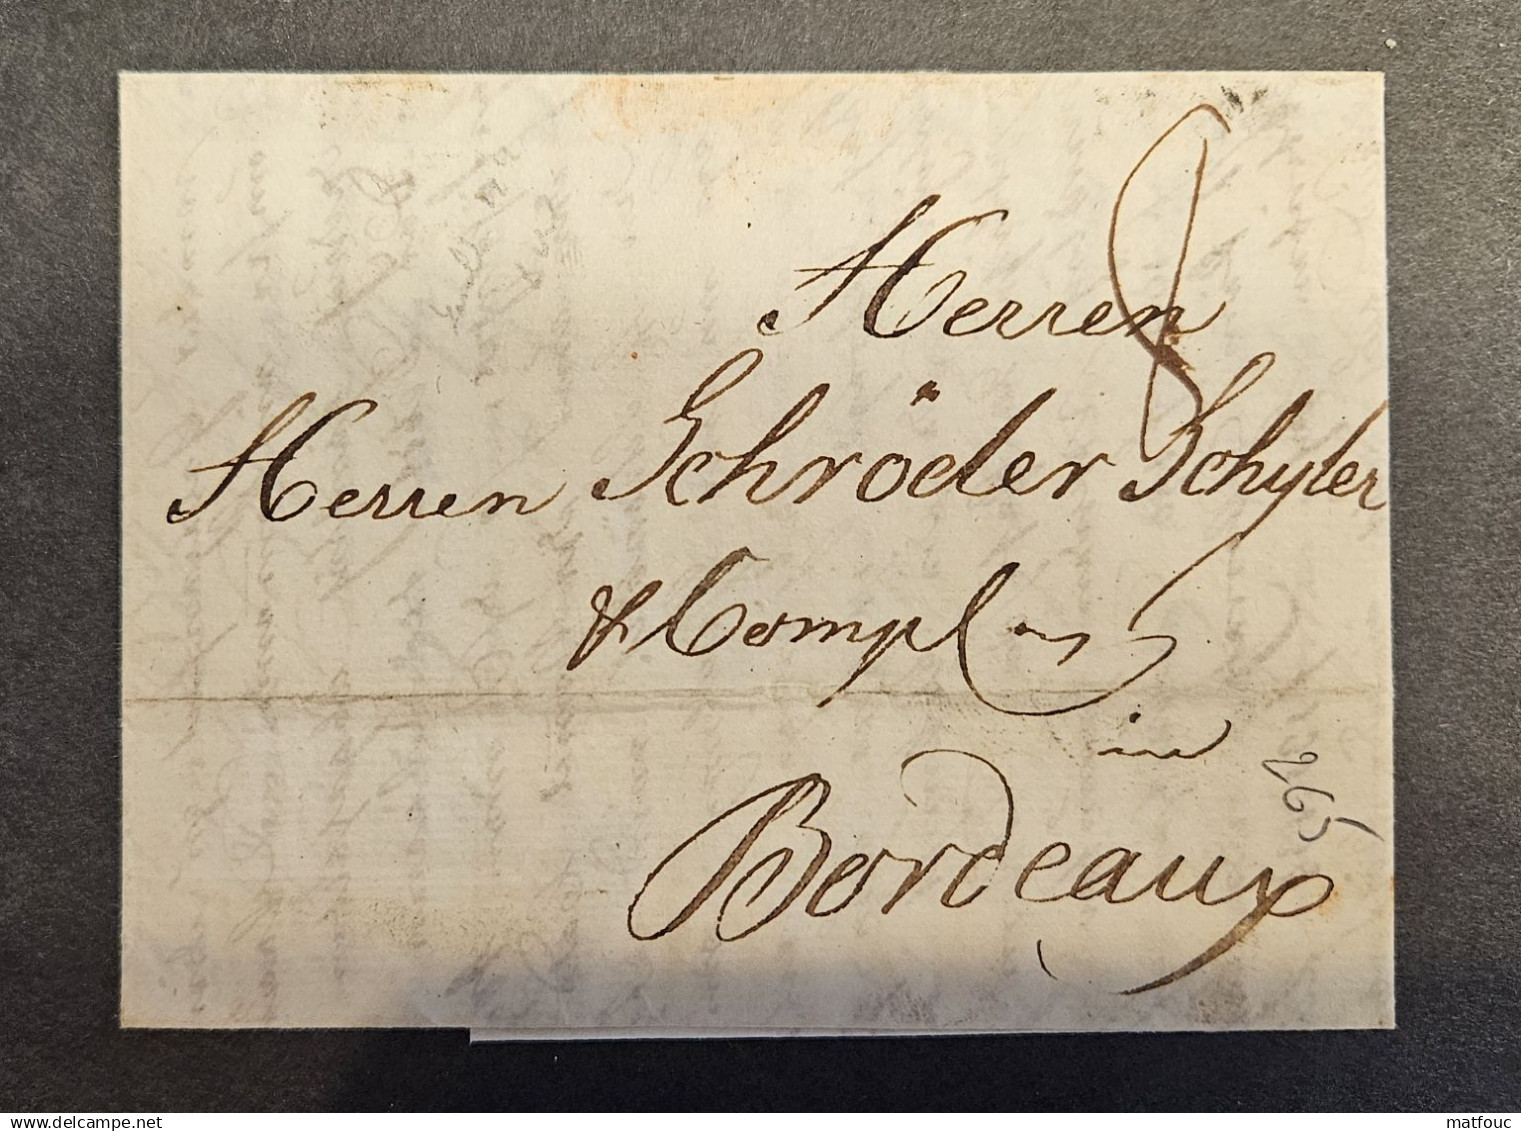 Herren
Herren Schröder Schyler
& Comp
in
Bordeaux
565
DELCAMPE.NET
matfouc